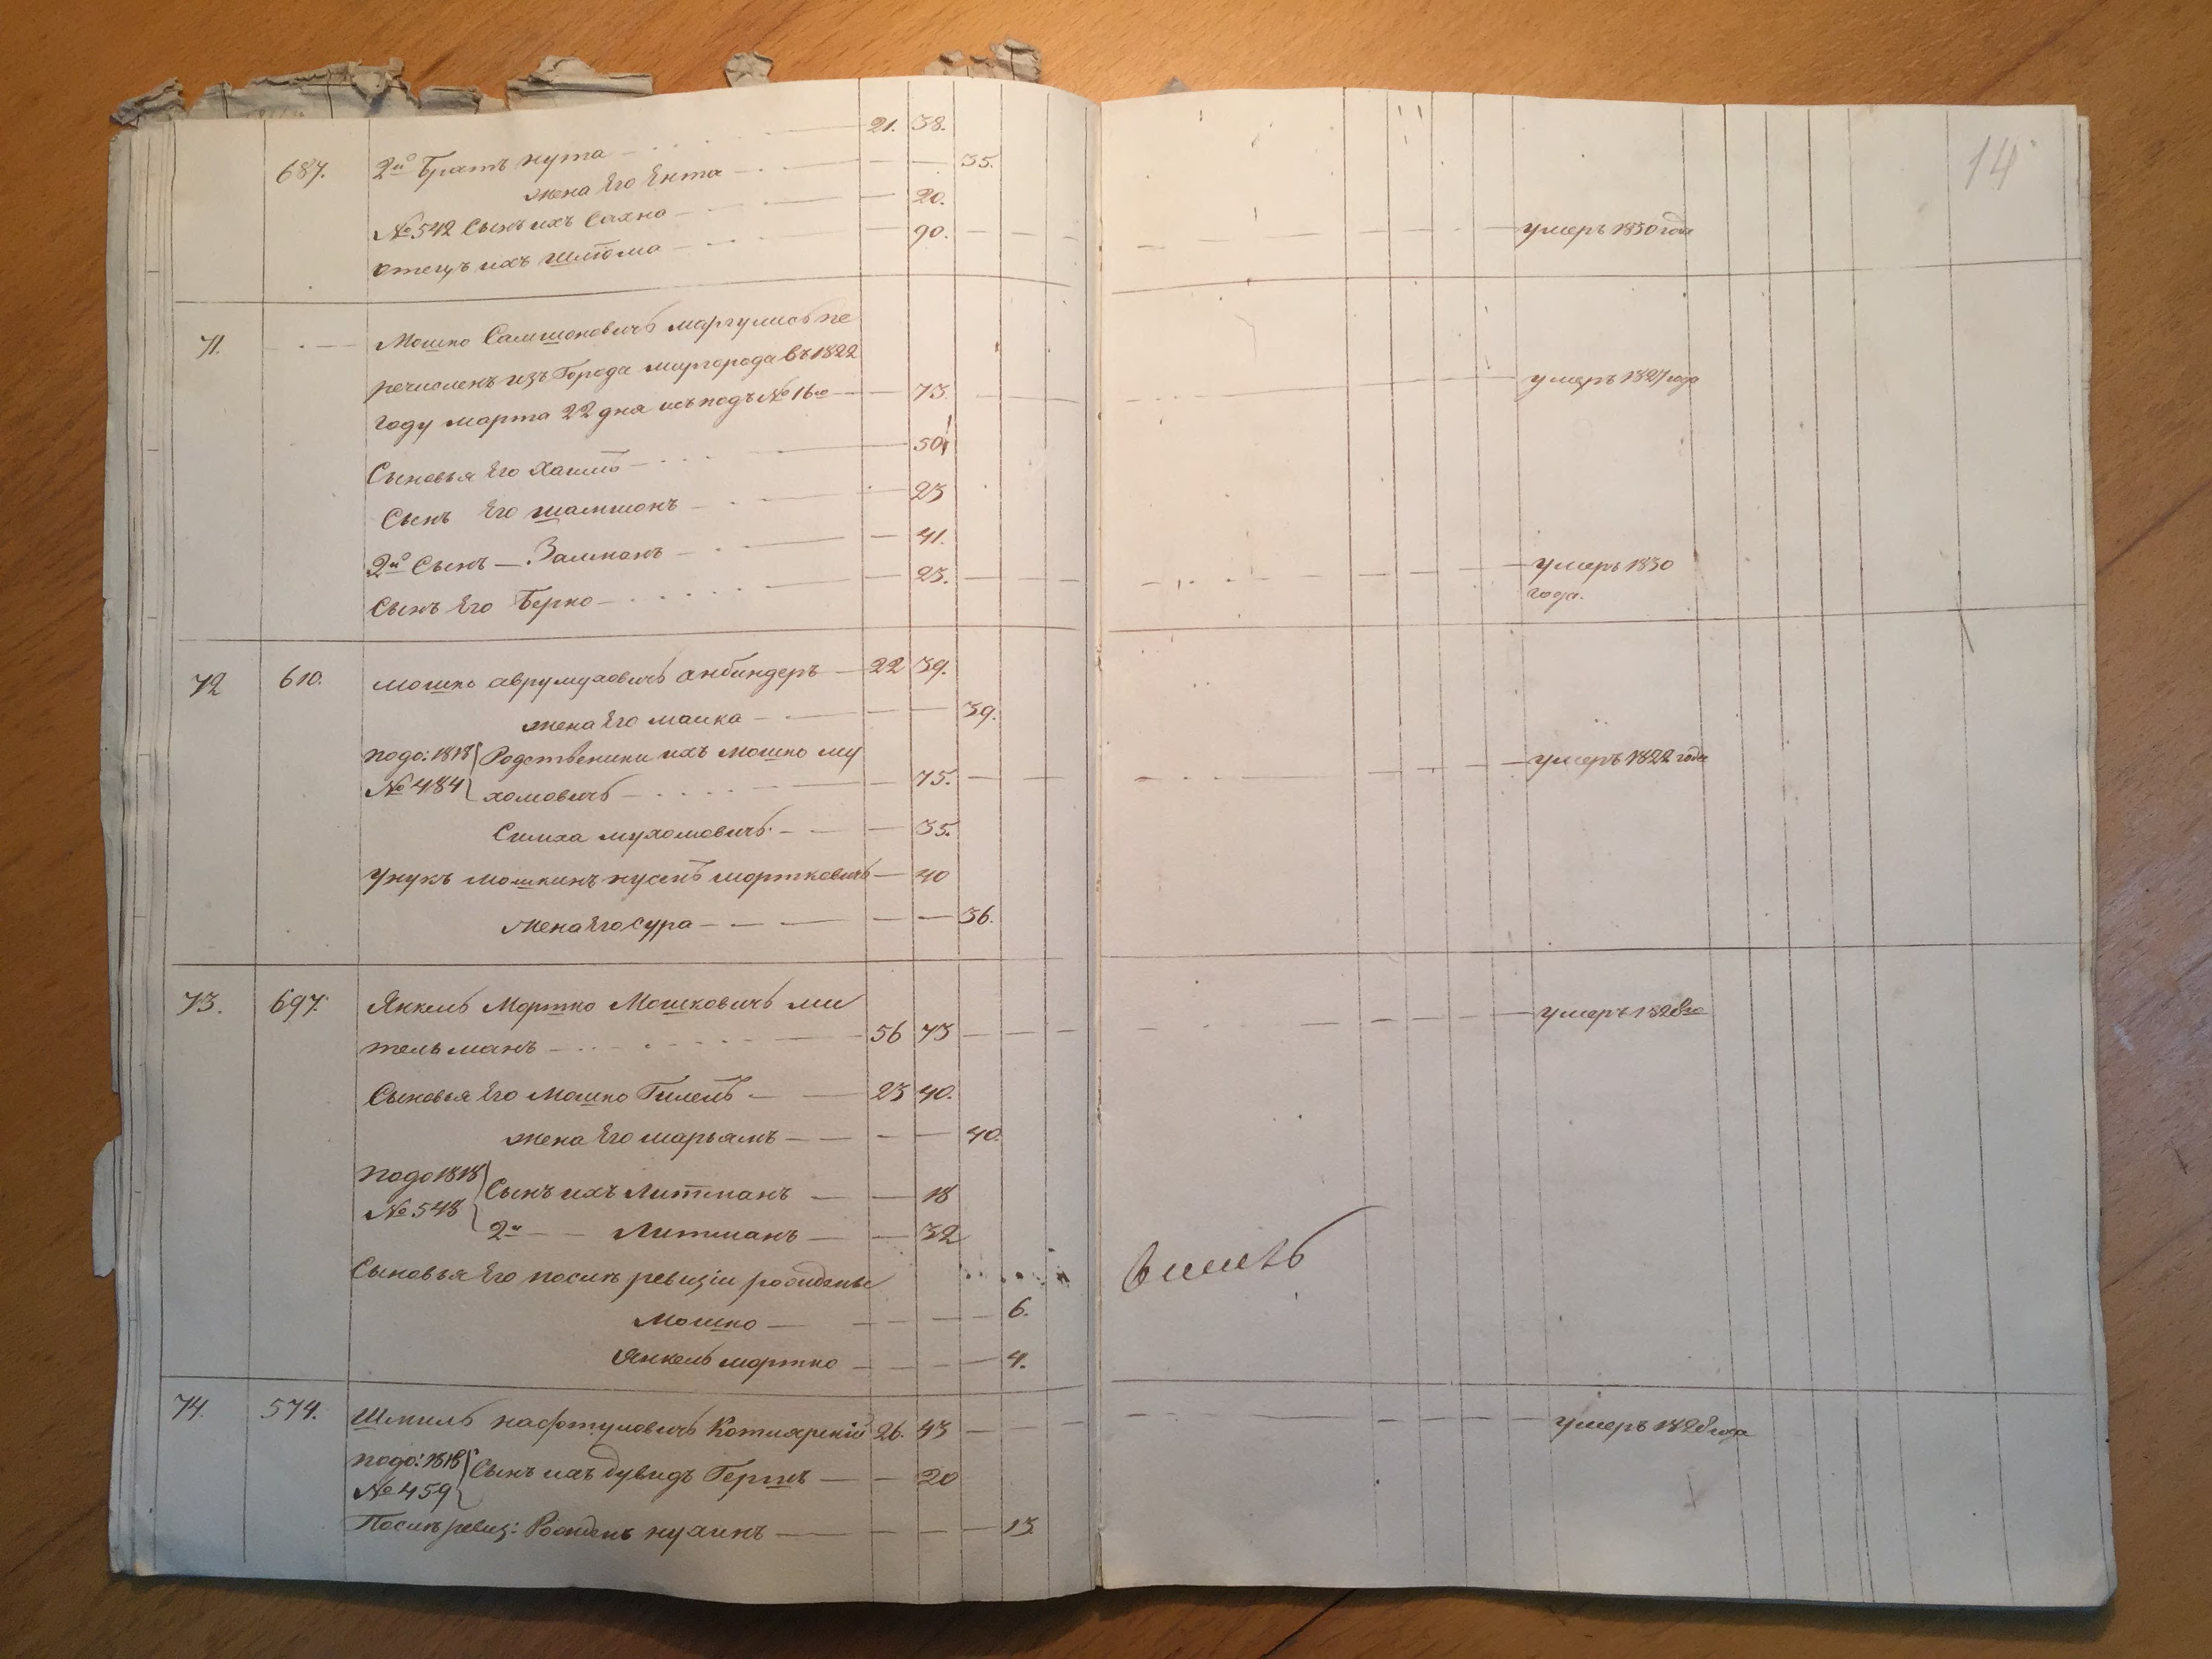 14
687. 2й Братъ нута 21. 38.
жена Его Ента 35.
№ 542 Сынъ ихъ Сахно 20.
отецъ ихъ шлiома 90. умеръ 1830 года
71. Мошко Самшоновичъ маргулисъ пе
речисленъ изъ Города миргорода въ 1822
году марта 22 дня подъ № 16 73. умеръ 1827 года
Сыновья Его Хаимъ 50
Сынъ Его шамшонъ 23
2й Сынъ — Залманъ 41.
Сынъ Его Берко 23. умеръ 1830
года.
72 610. мошко аврумуховичъ анбиндеръ 22 39.
жена Его малка 39.
подо: 1818 Родственики ихъ мошко му
№ 484 хомовичъ 75. умеръ 1822 года
Симха мухомовичъ 35.
унукъ мошкинъ нусенъ мортковичъ 40
жена Его сура 36.
73. 697. Янкель Мортко Мошковичъ ми
тельманъ 56 73 умеръ 1828го
Сыновья Его Мошко Гилель 23 40.
жена Его марьямъ 40.
подо 1818 Сынъ ихъ Литманъ 18
№ 548 2й Литманъ 32
Сыновья Его послѣ ревизiи рожденые
Мошко 6.
Янкель мортко 4.
74. 574. Шмиль нафтуловичъ Котлярскiй 26. 43 умеръ 1828 года
подо: 1818 Сынъ ихъ дувидъ Гершъ 20
№ 459
Послѣ ревиз: Рожденъ нухинъ 13